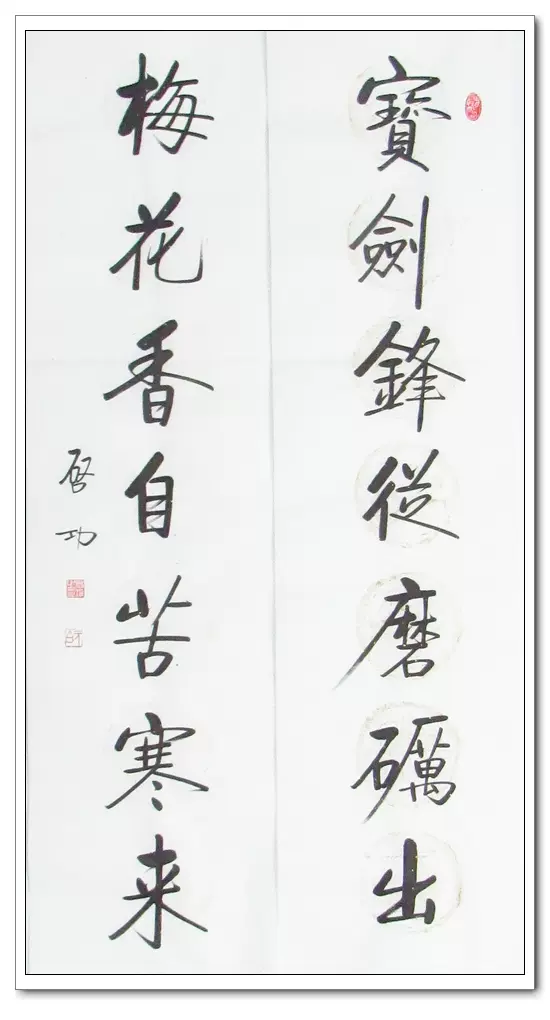 寶劍鋒從磨礪出
梅花香自苦寒来
启功